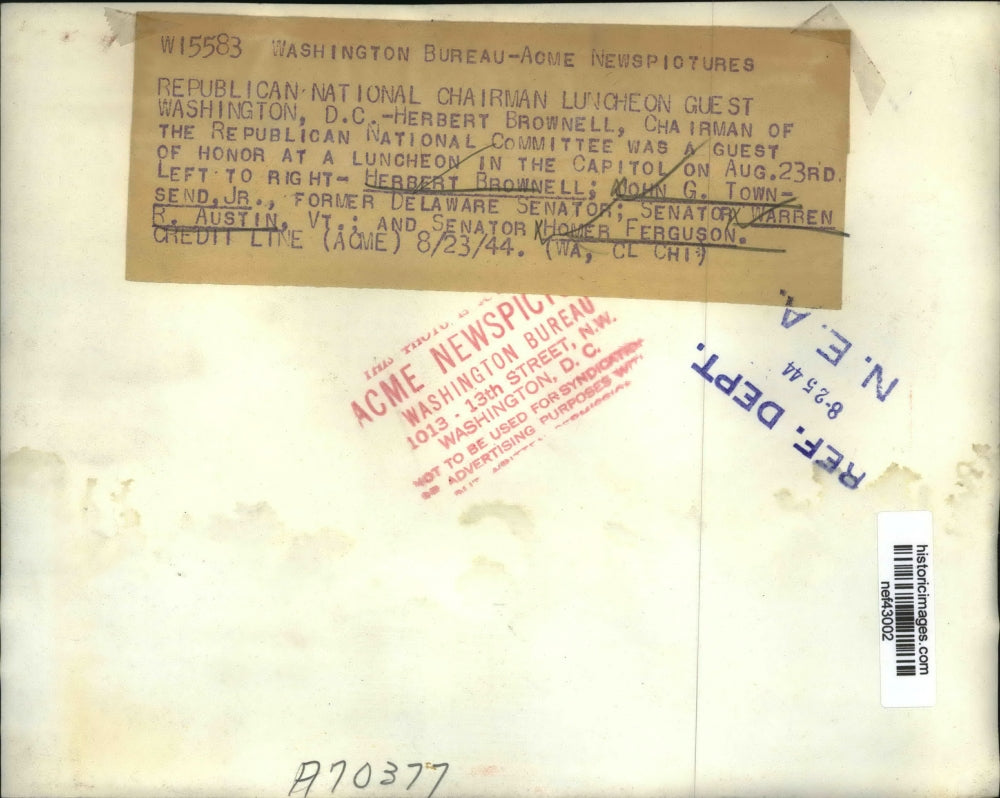 W15583 WASHINGTON BUREAU-ACME NEWSPICTURES
REPUBLICAN NATIONAL CHAIRMAN LUNCHEON GUEST
WASHINGTON, D.C.-HERBERT BROWNELL, CHAIRMAN OF
THE REPUBLICAN NATIONAL COMMITTEE WAS A GUEST
OF HONOR AT A LUNCHEON IN THE CAPITOL ON AUG.23RD.
LEFT TO RIGHT- HERBERT BROWNELL; JOHN G. TOWN-
SEND,JR., FORMER DELAWARE SENATOR; SENATOR WARREN
R. AUSTIN, VT.; AND SENATOR HOMER FERGUSON.
CREDIT LINE (ACME) 8/23/44. (WA, CL CHI)
THIS PHOTO IS
ACME NEWSPIC
WASHINGTON BUREAU
1013 - 13th STREET, N.W.
WASHINGTON, D. C.
NOT TO BE USED FOR SYNDICATION
OR ADVERTISING PURPOSES WITH
N. E. A.
8-25 44
REF. DEPT.
historicimages.com
nef43002
A70377